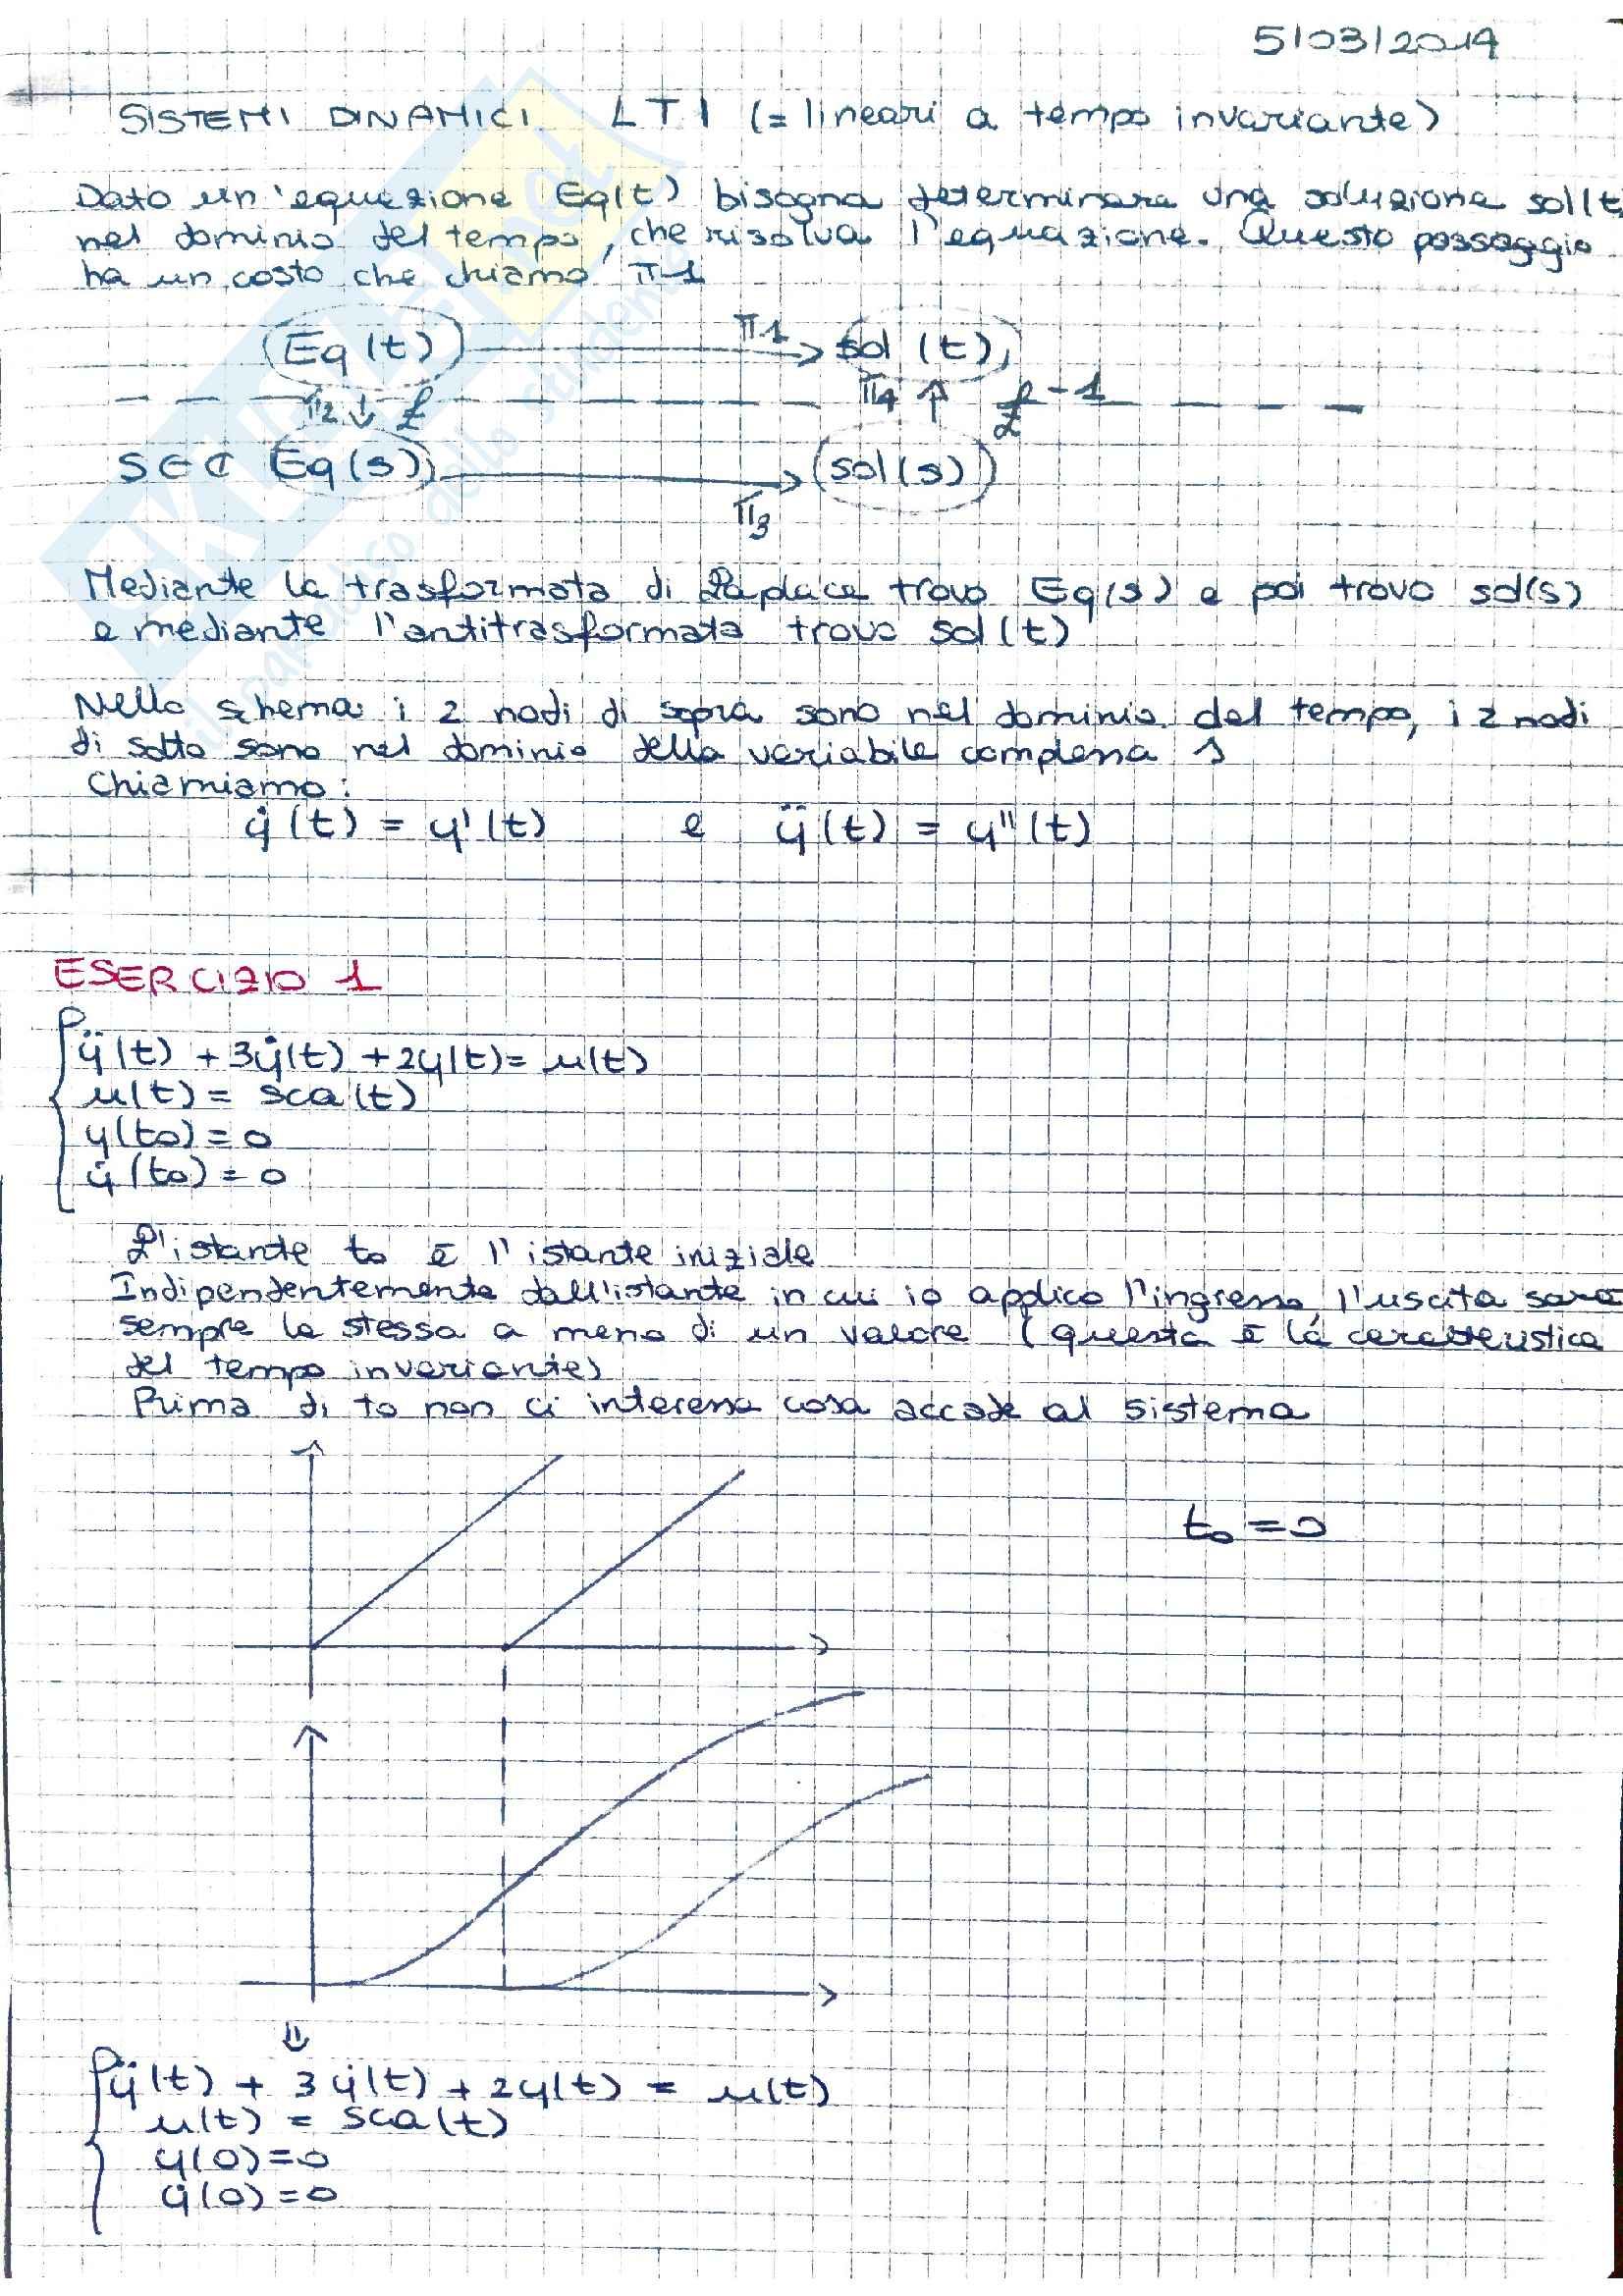 5/03/2014
SISTEMI DINAMICI LTI (= lineari a tempo invariante)
Dato un'equazione Eq(t) bisogna determinare una soluzione sol(t
nel dominio del tempo, che risolva l'equazione. Questo passaggio
ha un costo che chiamo π1
Eq(t) π1 sol(t)
π2 ↓ ℒ π4 ↑ ℒ⁻¹
S∈ℂ Eq(s) sol(s)
π3
Mediante la trasformata di Laplace trovo Eq(s) e poi trovo sol(s)
e mediante l'antitrasformata trovo sol(t)
Nello schema i 2 nodi di sopra sono nel dominio del tempo, i 2 nodi
di sotto sono nel dominio della variabile complessa s
Chiamiamo:
ẏ(t) = y'(t) e ÿ(t) = y''(t)
ESERCIZIO 1
ÿ(t) + 3ẏ(t) + 2y(t) = u(t)
u(t) = sca(t)
y(t0) = 0
ẏ(t0) = 0
L'istante t0 è l'istante iniziale
Indipendentemente dall'istante in cui io applico l'ingresso l'uscita sarà
sempre la stessa a meno di un valore (questa è la caratteristica
del tempo invariante)
Prima di t0 non ci interessa cosa accade al sistema
t0 = 0
⇓
ÿ(t) + 3ẏ(t) + 2y(t) = u(t)
u(t) = sca(t)
y(0) = 0
ẏ(0) = 0